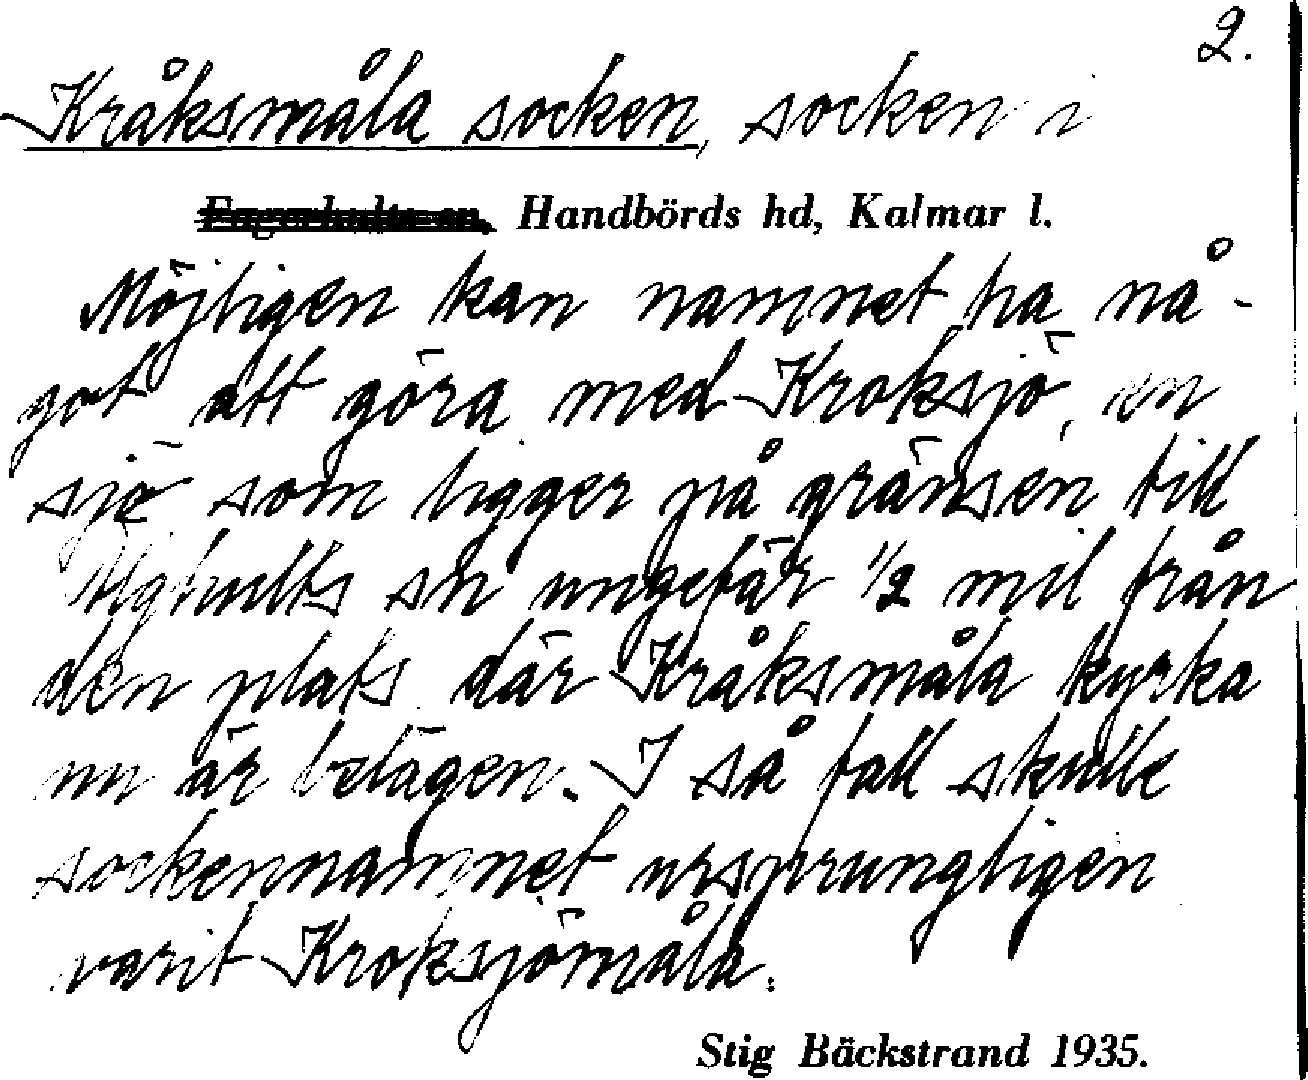 2.
Kråksmåla socken, socken i
Fagerhults sn, Handbörds hd, Kalmar l.
Möjligen kan namnet ha nå-
got att göra med Kroksjö, en
sjö som ligger på gränsen till
Älghults sn ungefär 1/2 mil från
den plats där Kråksmåla kyrka
nu är belägen. I så fall skulle
sockennamnet ursprungligen
varit Kroksjömåla.
Stig Bäckstrand 1935.